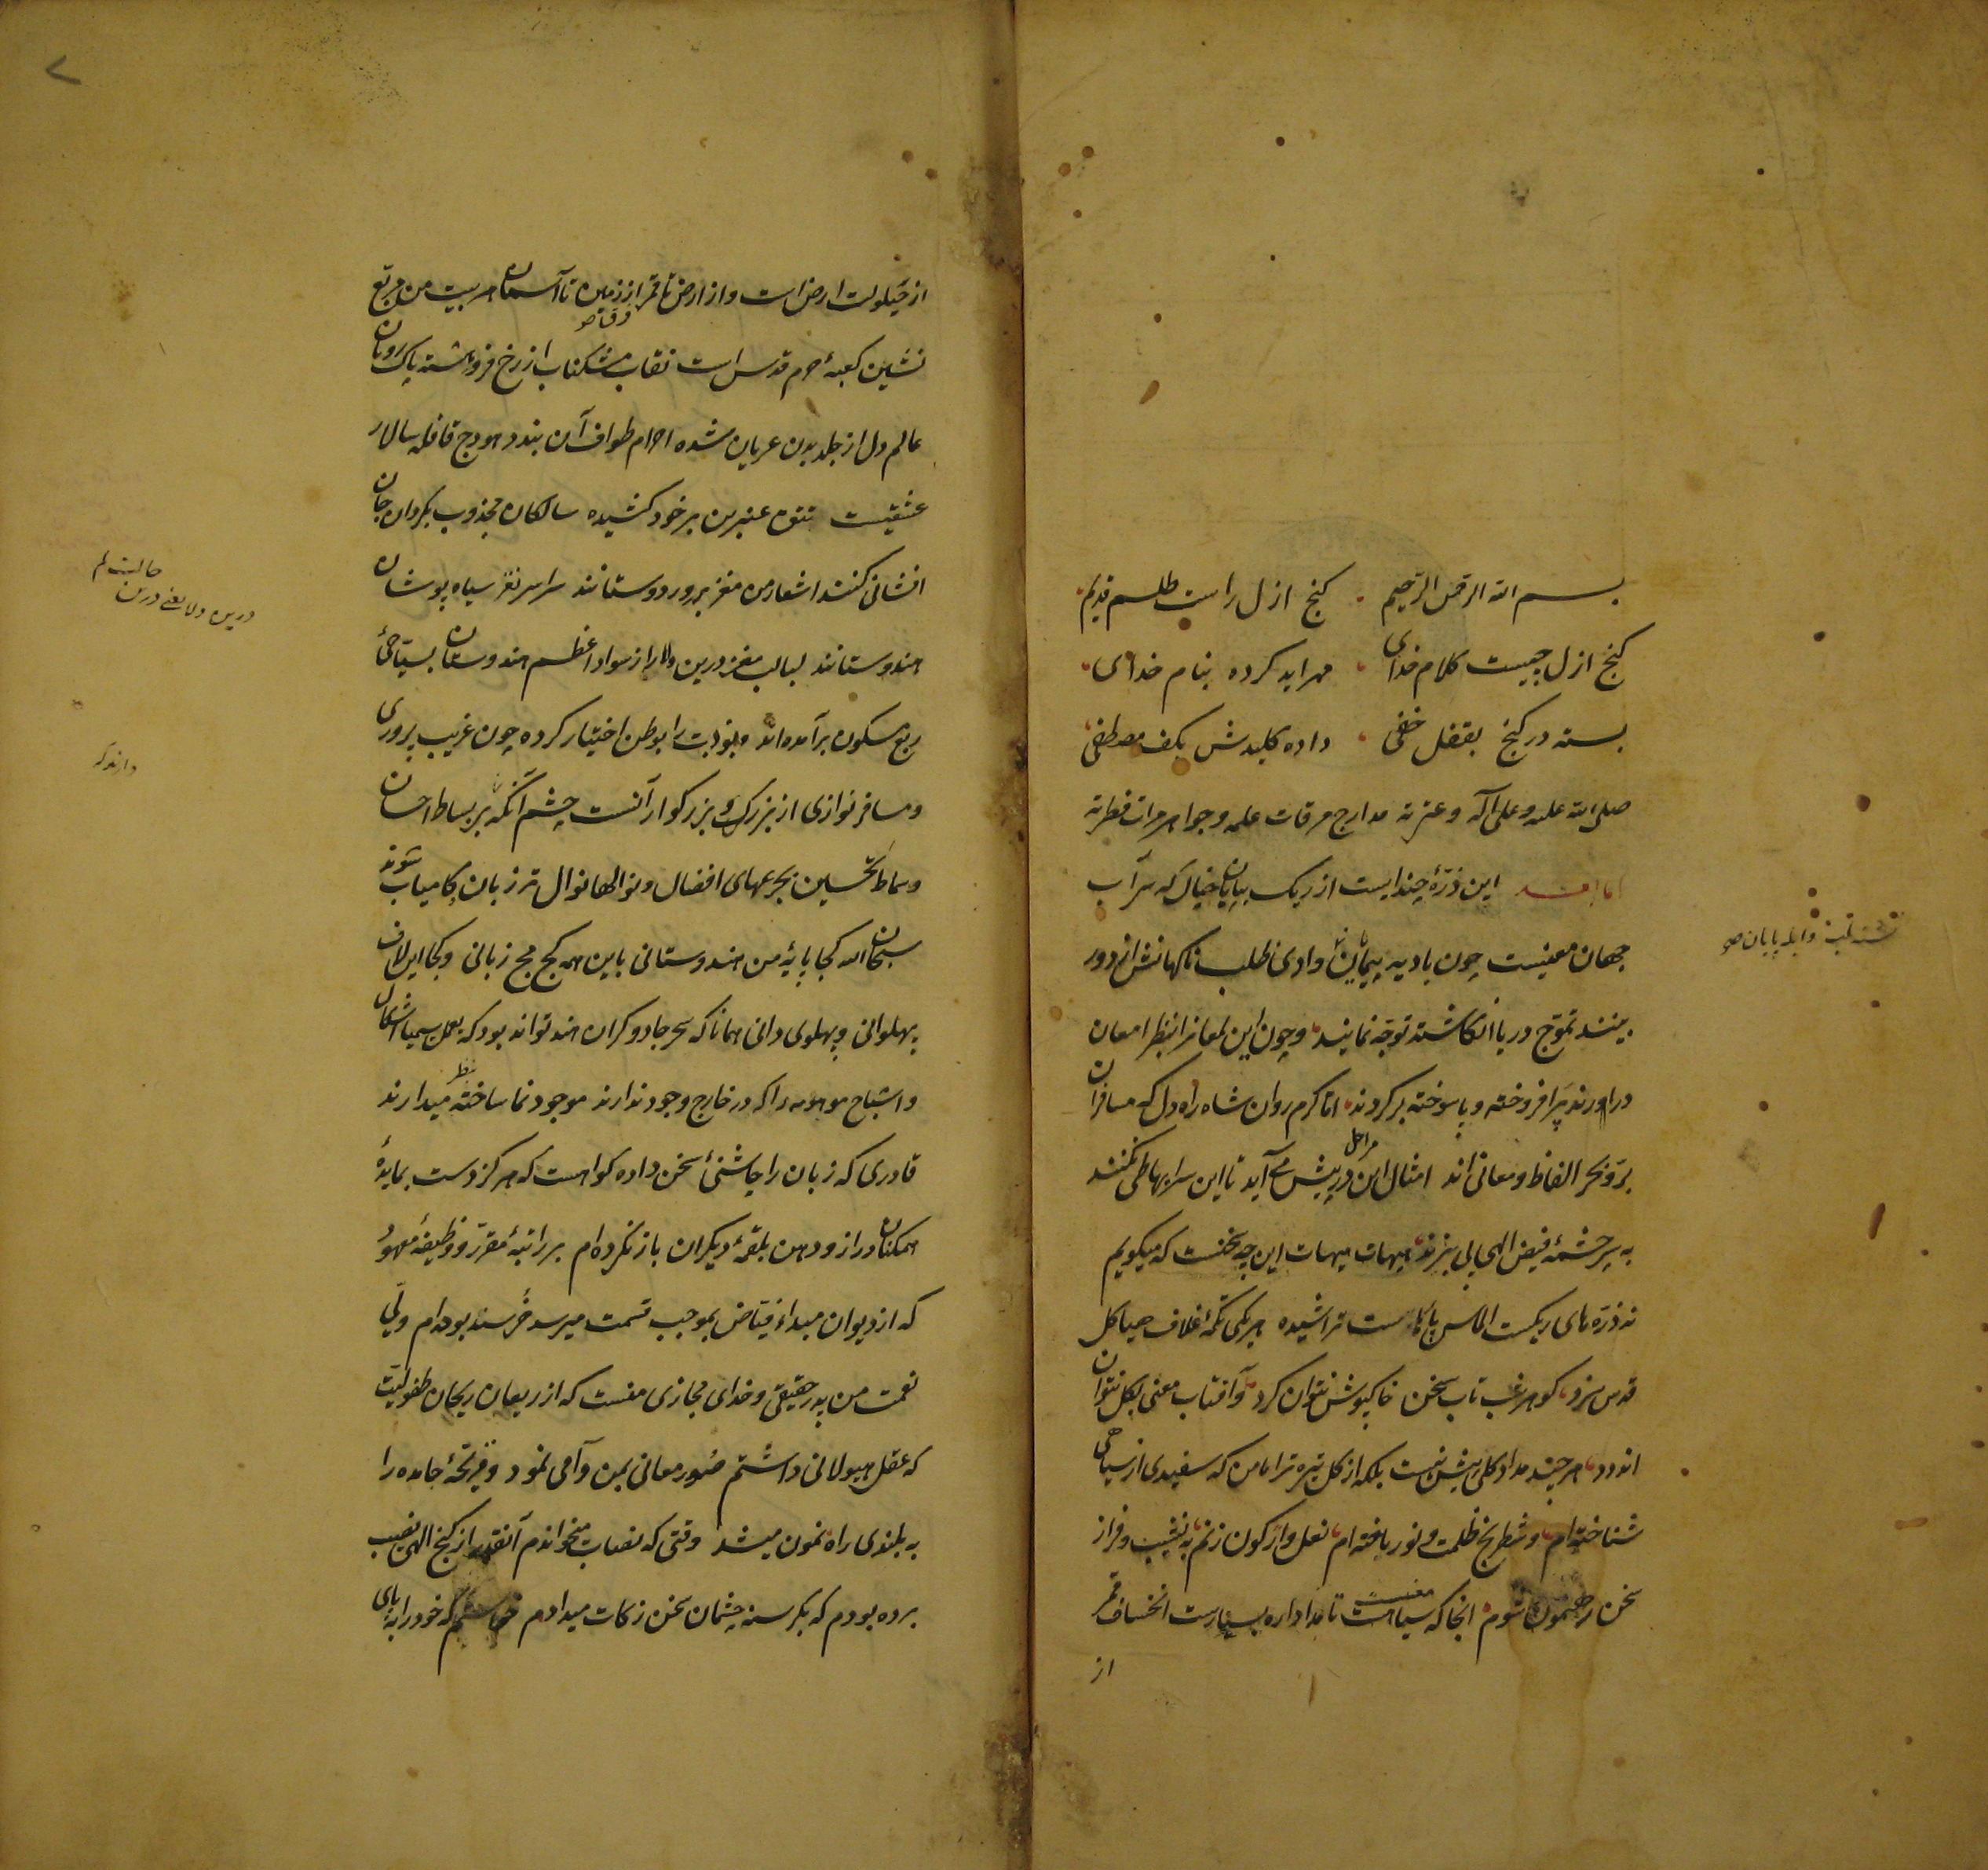 بسم الله الرحمن الرحیم گنج ازل راست طلسم قدیم
گنج ازل چیست کلام خدای مهر ابد کرده بنام خدای
بسته در گنج بقفل خفی داده کلیدش بکف مصطفی
صلی الله علیه و علی آله و عترته مدارج مرقات علمه و جواهر مرات فطرته
اما بعد این ذرّهٔ چند است از ریک بیابان خیال که سرآب
جهان معنیست چون بادیه پیمایان وادی طلب ناکهانش از دور
بینند تموّج دریا انکاشته توجّه نمایند و چون این لمعانرا بنظر امعان
دراورند پَر افروخته و پا سوخته برکردند امّا کرم روان شاه راه دل که مسافران
برّ و بحر الفاظ و معانی اند امثال این مراحل در پیش می آید تا این سرابها طی نکنند
به سرچشمهٔ فیض الهی پی نبرند هیهات هیهات این چه سخنست که میکویم
نه ذرّه های ریکست الماس تراشیده هر یکی تکمهٔ غلاف هیاکل
قدس سزد کوهر شب تاب سخن خاکپوش نتوان کرد و آفتاب معنی بکل نتوان
اندود هر چند مداد کلی بیش نیست بلکه از کل تیره تر اما من که سفیدی از سیاهی
شناخته ام و شطرنج ظلمت و نور باخته ام نعل واژکون زنم به نشیب و فراز
سخن رهنمون شوم انجا که سیاهیست تا مداد اره بسیارست انخساف قمر
از
نشسته
و ابله پایان صح
از حیلولت ارض است و از ارض تا قمر از زمین تا آسمان هر بیت من مربّع
نشین کعبهٔ حرم قدس است نقاب مشکناب از رخ فروهشته پاک روان
عالم دل از جلد بدن عریان شده احرام طواف آن بندد هودج قافله سالار
عشقیست تتق عنبرین بر خود کشیده سالکان مجذوب بکروان جان
افشانی کنند اشعار من مغز پرور دوستانند سراسر نغز سیاه پوشان
هندوستانند لبالب مغز درین ولا از سواد اعظم هندوستان بسیّاحی
ربع مسکون برآمده اند و غربت را بوطن اختیار کرده چون غریب پروری
و مسافر نوازی از بزرک و بزرکوار آنست چشم آنکه بر بساط احسان
و سماط تحسین بجرعهای افضال و نوالها نوال تر زبان کامیاب شوند
سبحان الله کجا پایهٔ من هندوستانی باین همه کج مج زبانی و کجا این لاف
پهلوانی و پهلوی دانی همانا که سحر جادوکران هند تواند بود که بعمل سیمیا اشکال
و اشباح موهومه را که در خارج وجود ندارند موجود نما ساخته بنظر میدارند
قادری که زبان را چاشنیٔ سخن داده کواهست که هرکز دست بمایدهٔ
همکنان دراز و دهن بلقمهٔ دیکران باز نکرده ام بر راتبهٔ مقرّر و وظیفهٔ معهود
که از دیوان مبداء فیّاض بموجب قسمت میرسد خُرسند بوده ام ولّی
نعمت من پدر حقیقی و خدای مجازی منست که از ریعان ریحان طفولیّت
که عقل هیولانی داشتم صُور معانی بمن وامی نمود و قریحهٔ جامده را
به بلندی راه نمون میشد وقتی که نصاب میخواندم آنقدر از کنج الهی نصیب
برده بودم که بکرسنه چشمان سخن زکات میدادم خواستم که خود را به پای
درین ولا یعنی درین
حالت لم
دارند که